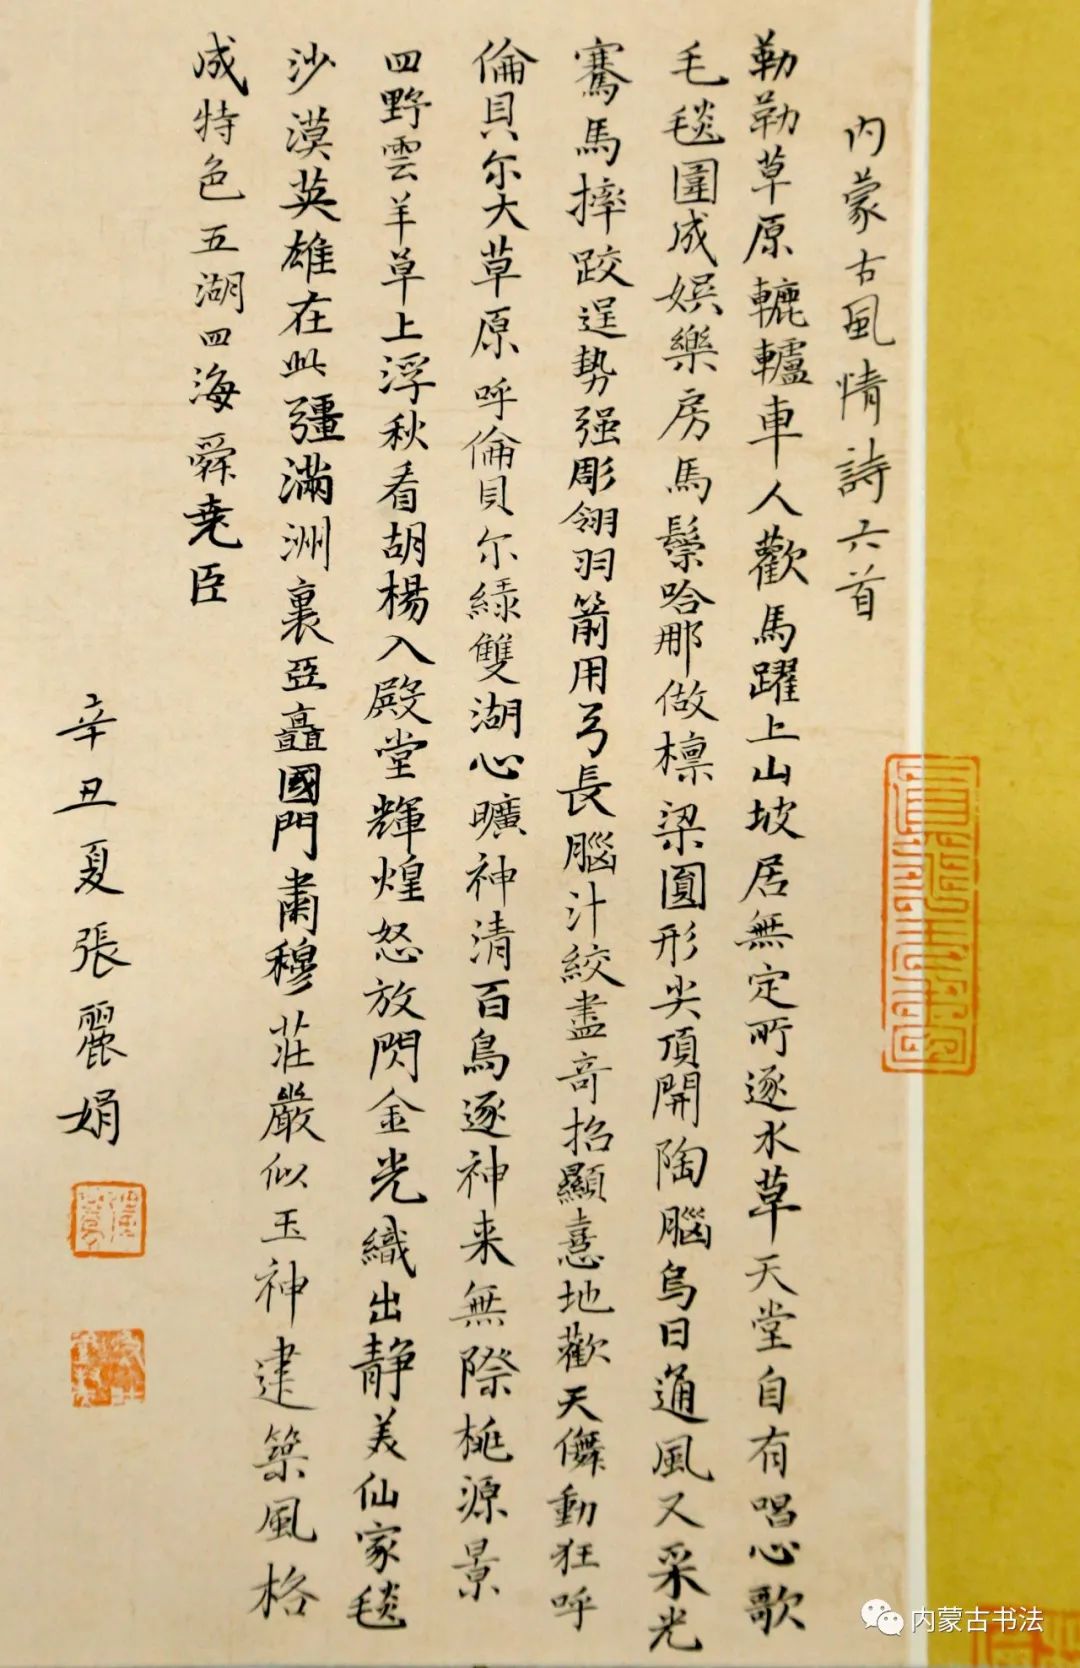 内蒙古風情詩六首
勒勒草原轆轤車人歡馬躍上山坡居無定所逐水草天堂自有唱心歌
毛毯圍成娛樂房馬鬃哈那做檁梁圓形尖頂開陶腦烏日通風又采光
騫馬摔跤逞勢强彫翎羽箭用弓長腦汁絞盡奇招顯憙地歡天儛動狂呼
倫貝尔大草原呼倫貝尔緑雙湖心曠神清百鳥逐神来無際桃源景
四野雲羊草上浮秋看胡楊入殿堂輝煌怒放閃金光織出静美仙家毯
沙漠英雄在此彊滿洲裏亞矗國門肅穆莊嚴似玉神建築風格
成特色五湖四海舜堯臣
辛丑夏張麗娟
内蒙古书法